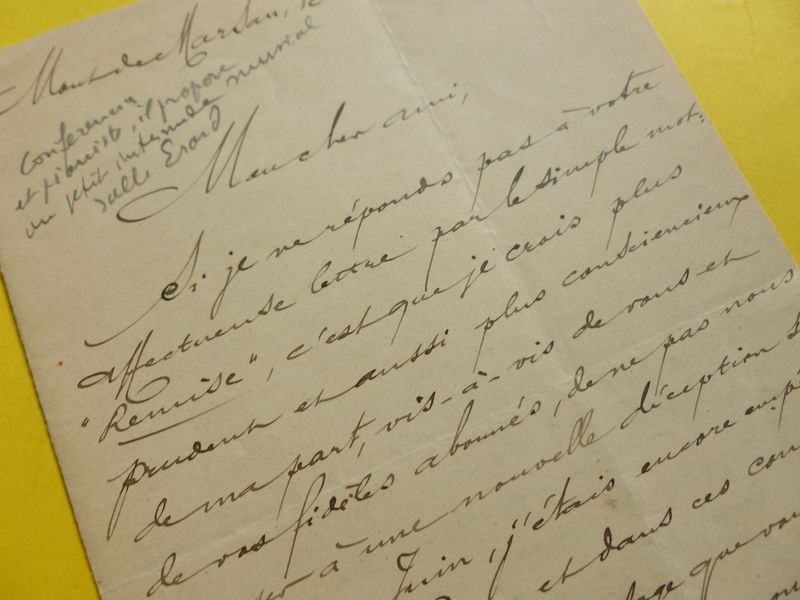 Mont de Marsan, le
Conférencier
et pianiste, il propose
un petit intermède musical
salle Erard
Mon cher ami,
Si je ne réponds pas à votre
affectueuse lettre par le simple mot:
"Remise", c'est que je crois plus
prudent et aussi plus consciencieux
de ma part, vis-à-vis de vous et
de vos fidèles abonnés, de ne pas nous
à une nouvelle déception
Juin, j'étais encore
et dans ces
que vou